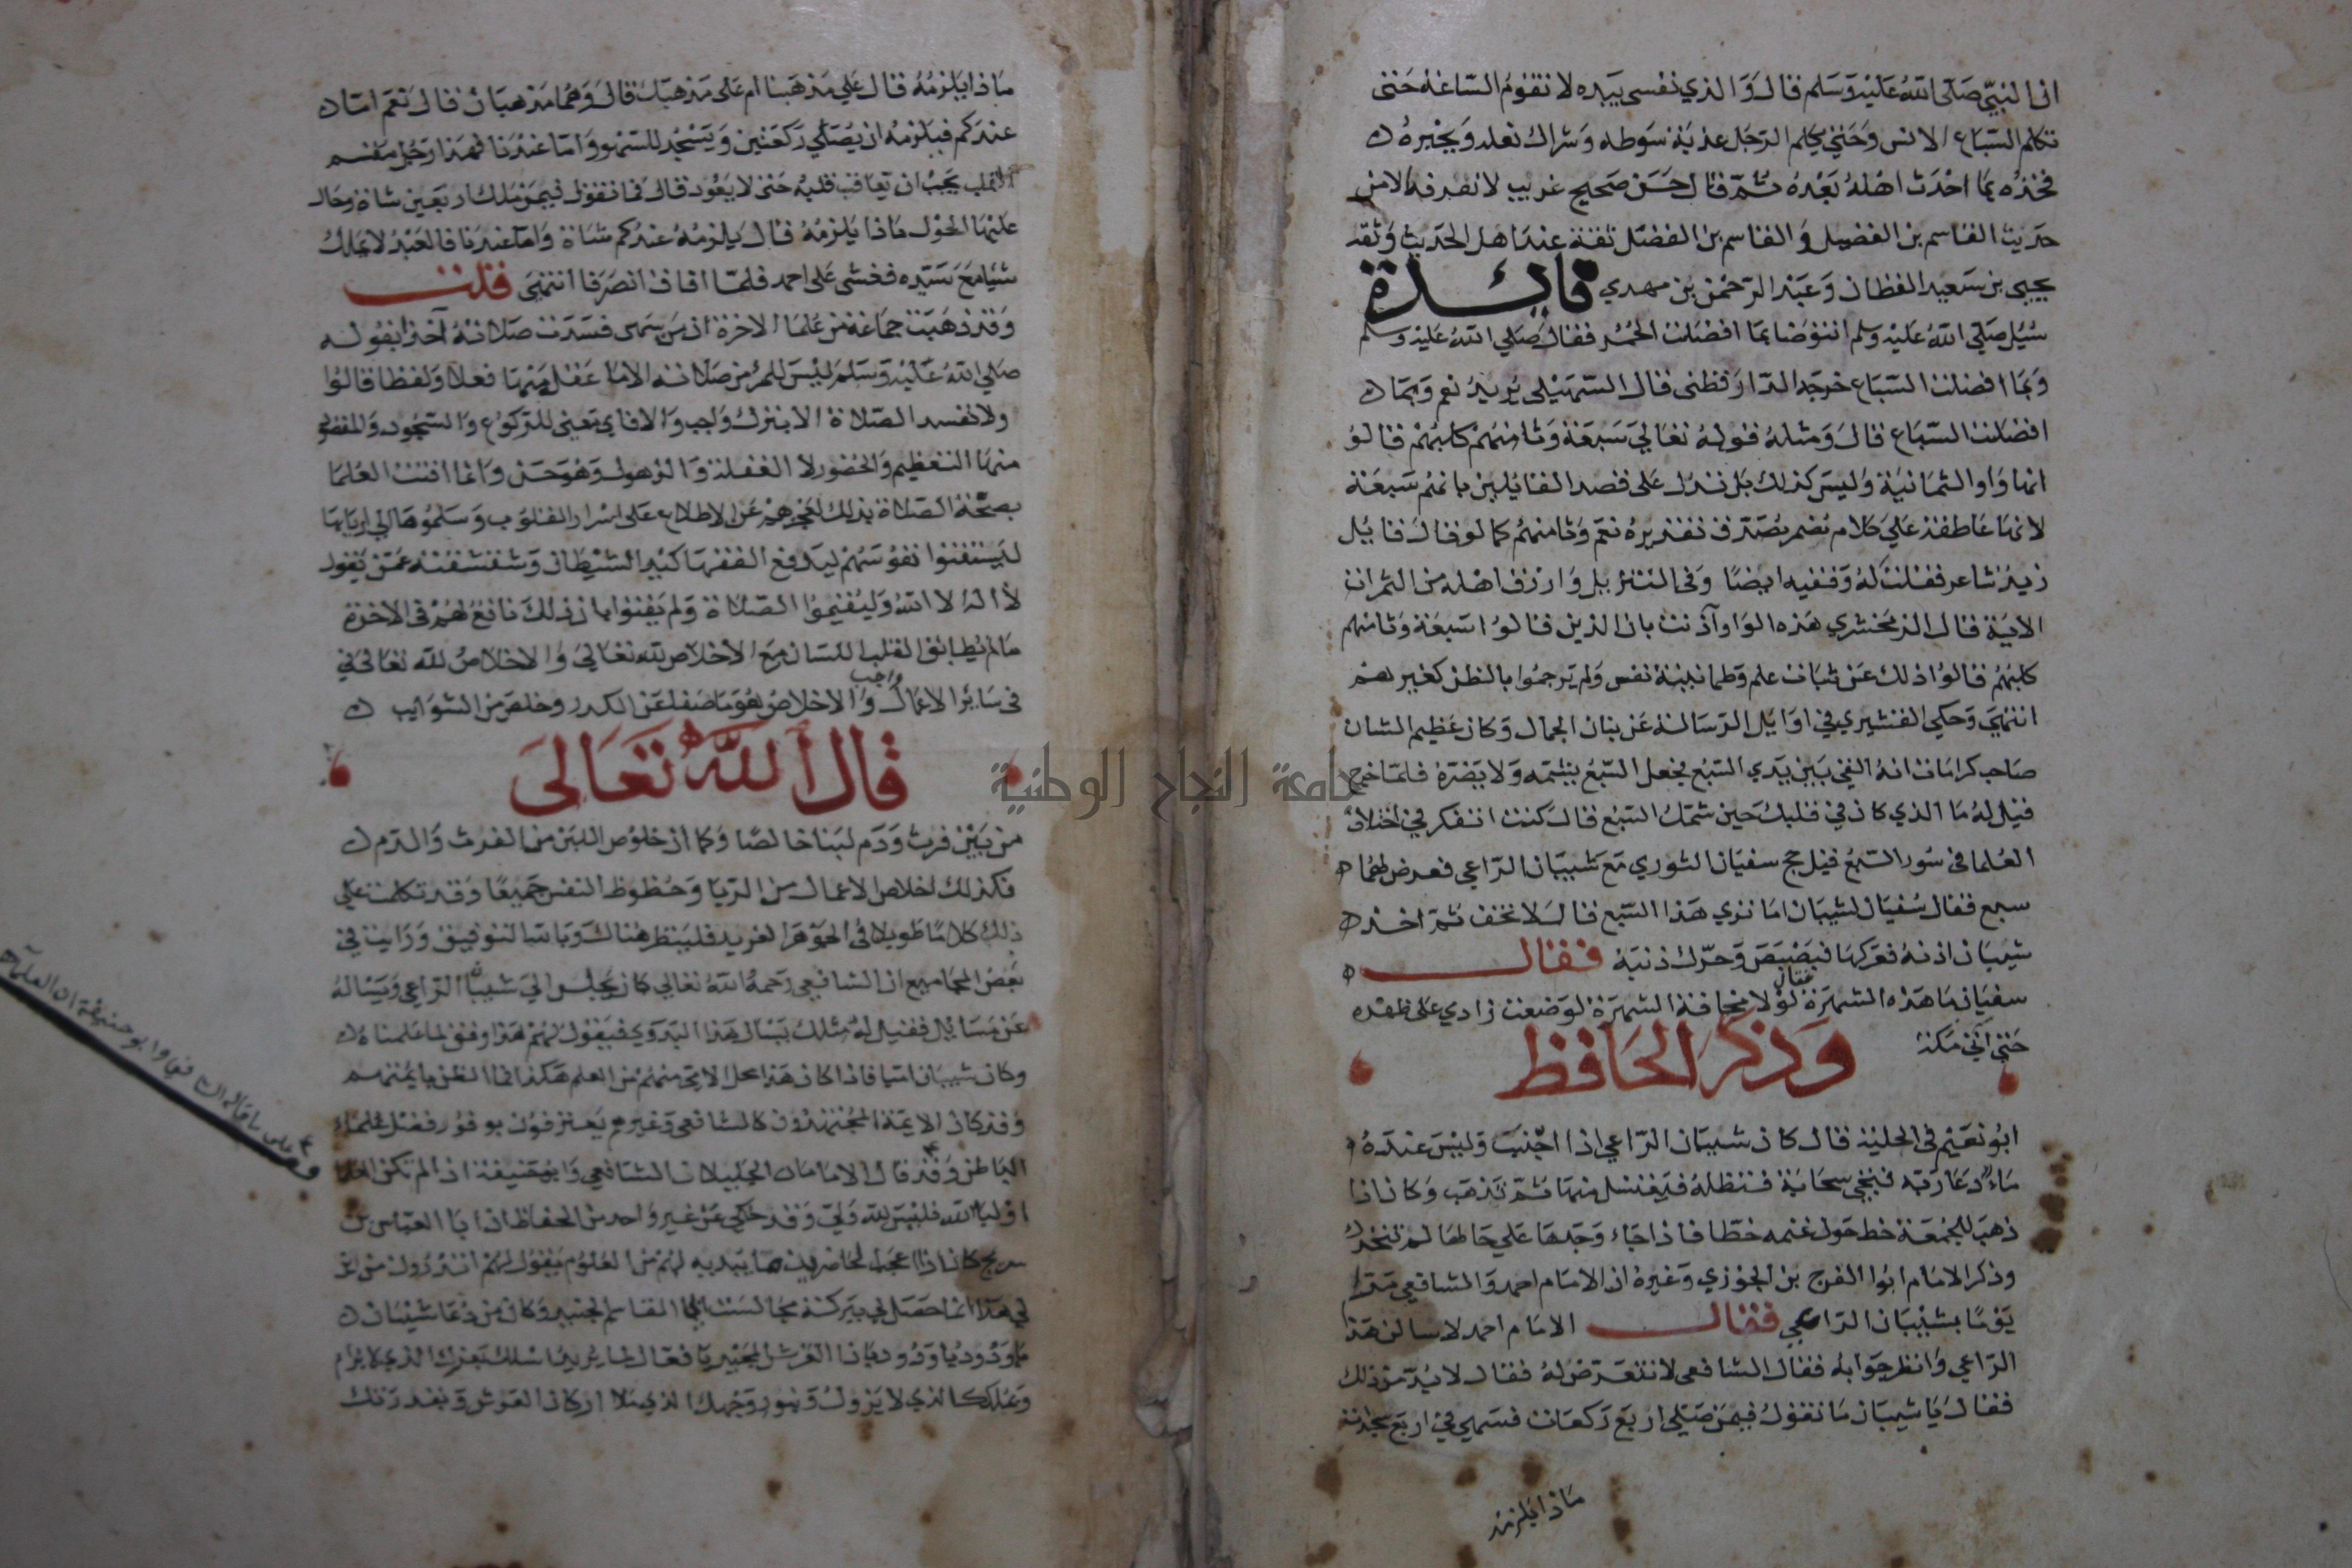 ان النبي صلى الله عليه وسلم قال والذي نفسي بيده لا تقوم الساعة حتى
تكلم السباع الانس وحتى يكلم الرجل عذبة سوطه وشراك نعله ويخبره
فخذه بما احدث اهله بعده ثم قال حسن صحيح غريب لا نعرفه الا من
حديث القاسم بن الفضل والقاسم بن الفضل ثقة عند اهل الحديث وثقه
يحيى بن سعيد القطان وعبد الرحمن بن مهدي فايدة
سئل صلى الله عليه وسلم انتوضا بما افضلت الحمر فقال صلى الله عليه وسلم
وبما افضلت السباع خرجه الدارقطني قال السهيلي يريد نعم وبما
افضلت السباع قال ومثله قوله تعالى سبعة وثامنهم كلبهم قالو
انها واو الثمانية وليس كذلك بل تدل على قصد القائلين بانهم سبعة
لانها عاطفة على كلام مضمر تقديره نعم وثامنهم كما لو قال قايل
زيد شاعر فقلت له وفقيه ايضا وفي التنزيل وارزق اهله من الثمرات
الاية قال الزمخشري هذه الواو آذنت بان الذين قالوا سبعة وثامنهم
كلبهم قالوا ذلك عن ثبات علم وطمانينة نفس ولم يرجموا بالظن كغيرهم
انتهى وحكى القشيري في اوايل الرسالة عن بنان الجمال وكان عظيم الشان
صاحب كرامات انه القي بين يدي السبع فجعل السبع يشمه ولا يضره فلما خرج
قيل له ما الذي كان في قلبك حين شمك السبع قال كنت اتفكر في اختلاف
العلما في سور السبع قيل حج سفيان الثوري مع شيبان الراعي فعرض لهما
سبع فقال سفيان لشيبان اما ترى هذا السبع قال لا تخف ثم اخذ
شيبان اذنه فعركها فبصبص وحرك ذنبه فقال
سفيان ما هذه الشهرة فقال لولا مخافة الشهرة لوضعت زادي على ظهره
حتى آتي مكة وذكر الحافظ
ابو نعيم في الحلية قال كان شيبان الراعي اذا اجنب وليس عنده
ماء دعا ربه فتجي سحابة فتظله فيغتسل منها ثم تذهب وكان اذا
ذهب للجمعة خط حول غنمه خطا فاذا جاء وجدها على حالها لم تتحرك
وذكر الامام ابوا الفرج بن الجوزي وغيره ان الامام احمد والشافعي مرا
يوما بشيبان الراعي فقال الامام احمد لاسالن هذا
الراعي وانظر جوابه فقال الشافعي لا تتعرض له فقال لا بد من ذلك
فقال يا شيبان ما تقول فيمن صلى اربع ركعات فسهي في اربع سجدات
ماذا يلزمه
ماذا يلزمه قال علي مذهبنا ام على مذهبك قال وهما مذهبان قال نعم اما
عندكم فيلزمه ان يصلي ركعتين ويسجد للسهو واما عندنا فهذا رجل مقسم
القلب يجب ان يعاقب قلبه حتى لا يعود قال فما تقول فيمن ملك اربعين شاة وحال
عليها الحول ماذا يلزمه قال يلزمه عندكم شاة واما عندنا فالعبد لا يملك
شيا مع سيده فغشى على احمد فلما افاق انصرفا انتهى قلت
وقد ذهبت جماعة من علما الاخرة ان من سهى فسدت صلاته آخذا بقوله
صلى الله عليه وسلم ليس للمرء من صلاته الا ما عقل منها فعلا ولفظا قالوا
ولا تفسد الصلاة الا بترك واجب والافاي معنى للركوع والسجود والمقصود
منها التعظيم والحضور لا الغفلة والذهول وهو حسن وانما افتت العلما
بصحة الصلاة بذلك لعجزهم عن الاطلاع على اسرار القلوب وسلموها الى اربابها
ليستفتوا نفوسهم ليدفع الفقها كيد الشيطان وشقشقته عمن يقول
لا اله الا الله وليقيموا الصلاة ولم يفتوا بان ذلك نافع لهم في الاخرة
ما لم يطابق القلب اللسان مع الاخلاص لله تعالى والاخلاص لله تعالى في
في سائر الاعمال واجب والاخلاص هو ما صفا عن الكدر وخلص من الشوايب
قال الله تعالى
من بين فرث ودم لبنا خالصا وكما ان خلوص اللبن من الفرث والدم
فكذلك اخلاص الاعمال من الريا وحظوظ النفس جميعا وقد تكلمت على
ذلك كلاما طويلا في الجوهر الفريد فلينظر هناك وبالله التوفيق ورايت في
بعض المجاميع ان الشافعي رحمه الله تعالى كان يجلس الى شيبان الراعي ويساله
عن مسائل فقيل له مثلك يسال هذا البدوي فيقول لهم هذا وفق لما علمناه
وكان شيبان اميا فاذا كان هذا محل الامي منهم من العلم هكذا فما الظن بايمتهم
وقد كان الايمة المجتهدون كالشافعي وغيره يعترفون بوفور فضل علماء
الباطن وقد قال الامامان الجليلان الشافعي وابو حنيفة اذا لم تكن العلما
اوليا لله فليس لله ولي وقد حكي عن غير واحد من الحفاظ ان ابا العباس بن
سريج كان اذا اعجب الحاضرين ما يبديه لهم من العلوم يقول لهم اتدرون من اين
لي هذا انما حصل لي ببركة مجالستي ابا القاسم الجنيد وكان من دعا شيبان
يا ودود يا ودود يا ذا العرش المجيد يا فعال لما يريد اسلك بعزك الذي لا يرام
وبملكك الذي لا يزول وبنور وجهك الذي ملا اركان العرش وبقدرتك